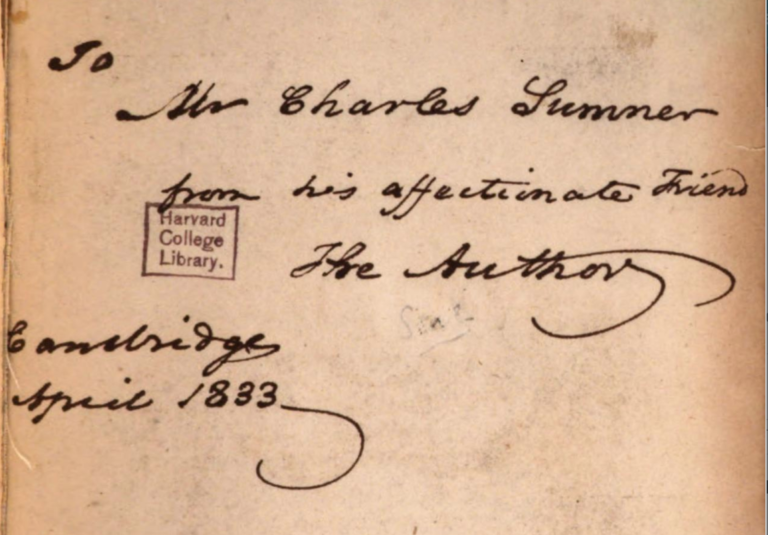 To
Mr Charles Sumner
from his affectionate Friend
Harvard
College
Library.
The Author
Cambridge
April 1833